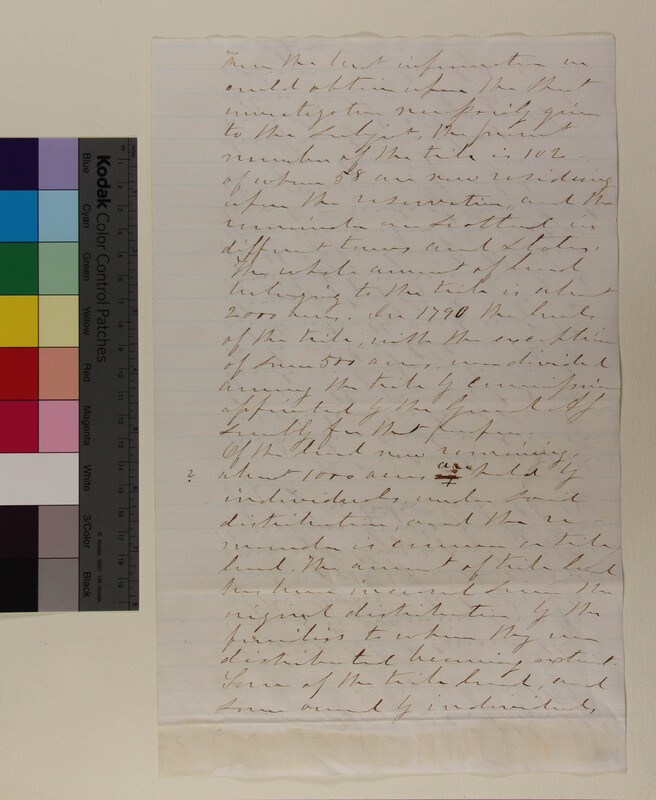 From the best information we
could obtain upon the short
investigation necessarily given
to the subject, the present
number of the tribe is 102
of whom 58 are now residing
upon the reservation, and the
remainder are scattered in
different towns and states.
The whole amount of land
belonging to the tribe is about
2000 acres. In 1790 the lands
of the tribe, with the exception
of some 500 acres, was divided
among the tribe by Commissioners
appointed by the General As-
sembly for that purpose.
Of the land now remaining,
? about 1000 acres are held by
individuals, under said
distribution, and the re-
mainder is common or tribe
land. The amount of tribe land
has been increased since the
original distribution, by the
families to whom they were
distributed becoming extinct.
Some of the tribe land, and
some owned by individuals,
Kodak Color Control Patches
Blue
Cyan
Green
Yellow
Red
Magenta
White
3/Color
Black